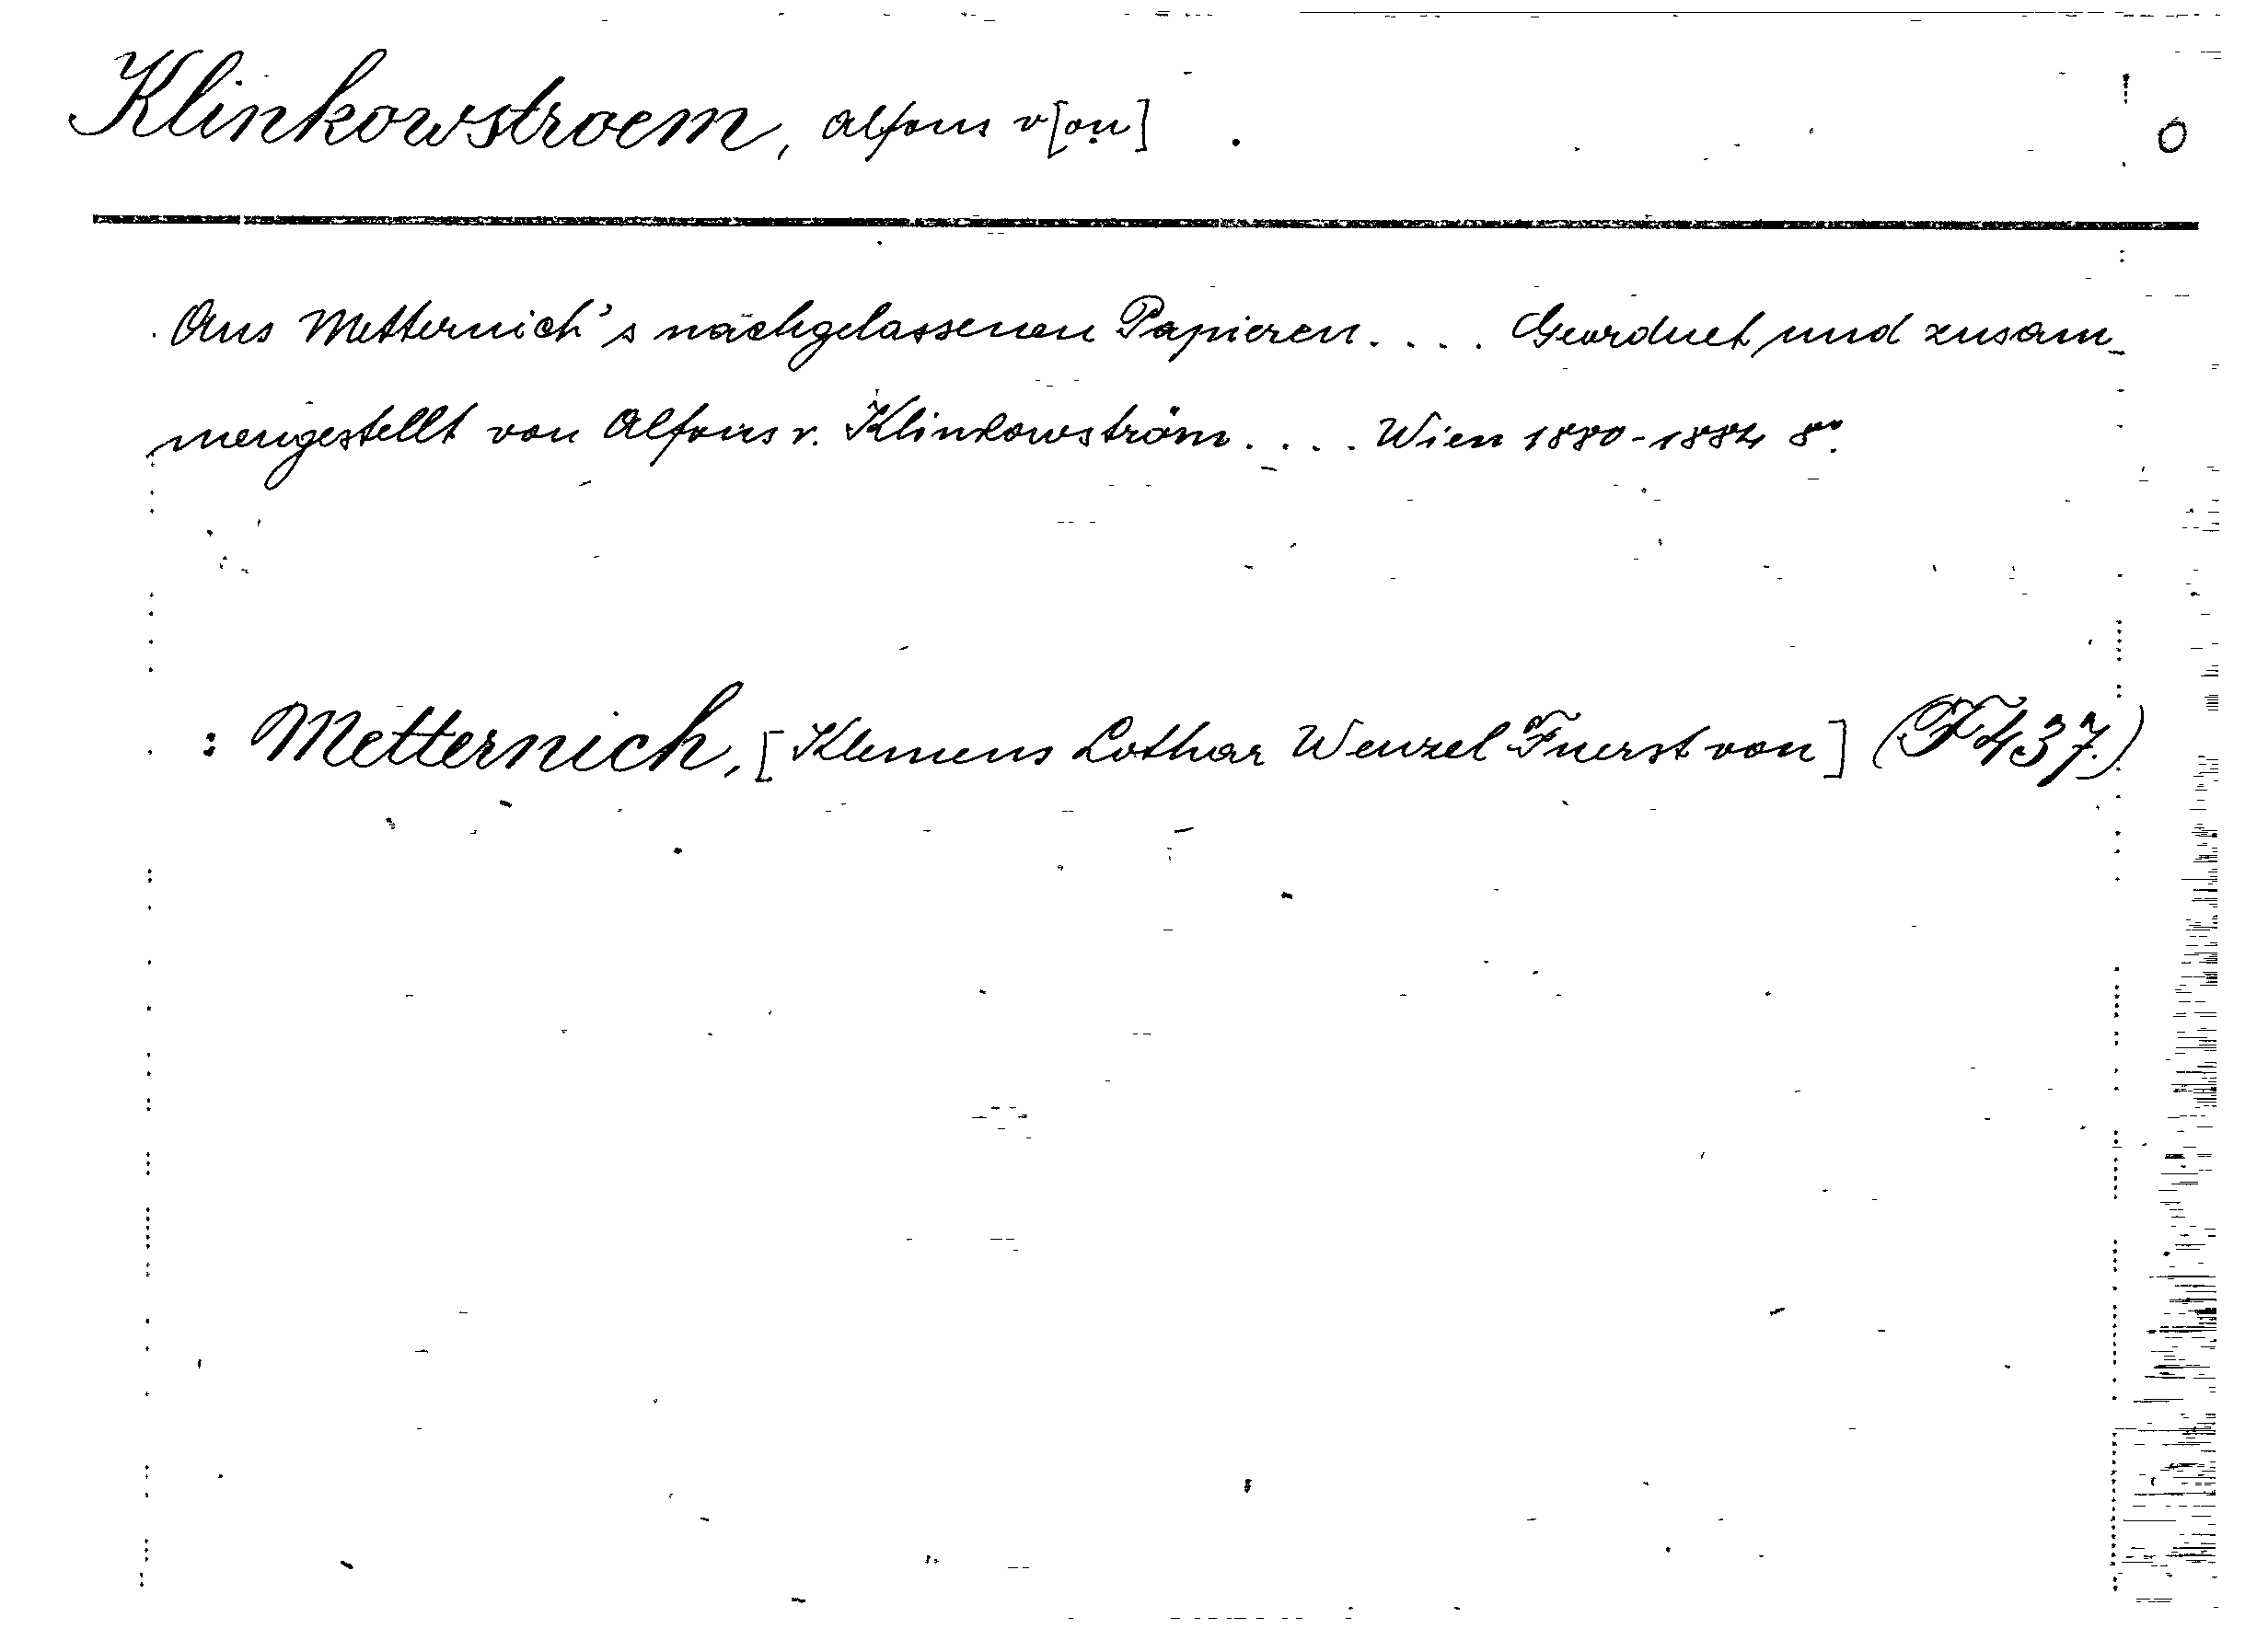 Klinkowstroem, Alfons v[on] . 0
Aus Metternich's nachgelassenen Papieren.... Geordnet und zusam-
mengestellt von Alfons v. Klinkowström.... Wien 1880-1884 8°.
: Metternich, [Klemens Lothar Wenzel Fuerst von] (F 437.)